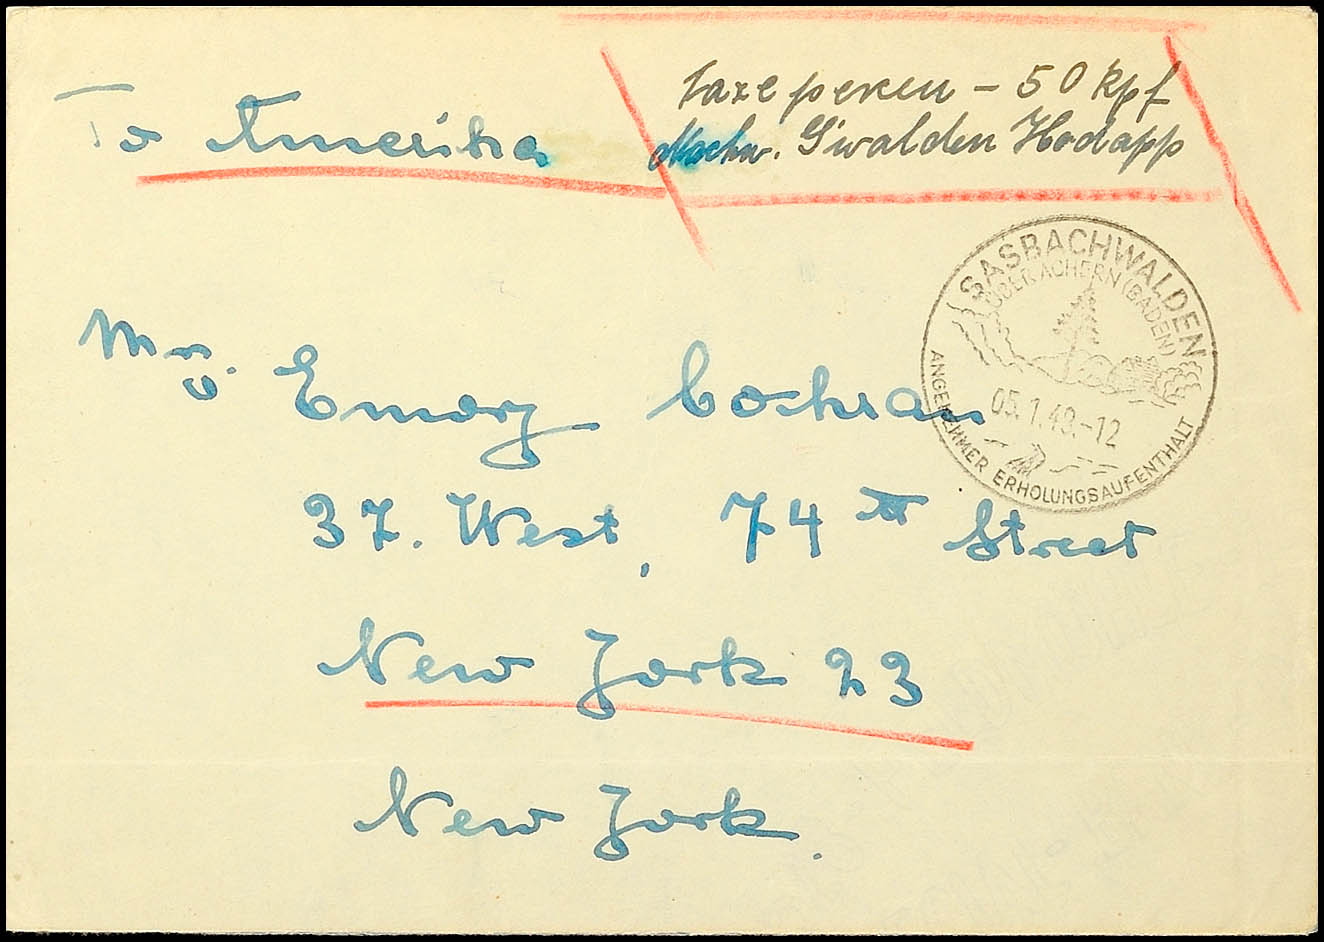 To Amerika
taxe percue - 50 Rpf
S'walden Hodapp
SASBACHWALDEN
ÜBER ACHERN (BADEN)
05.1.49.-12
ANGENEHMER ERHOLUNGSAUFENTHALT
Emory Cochran
37. West, 74th Street
New York 23
New York.